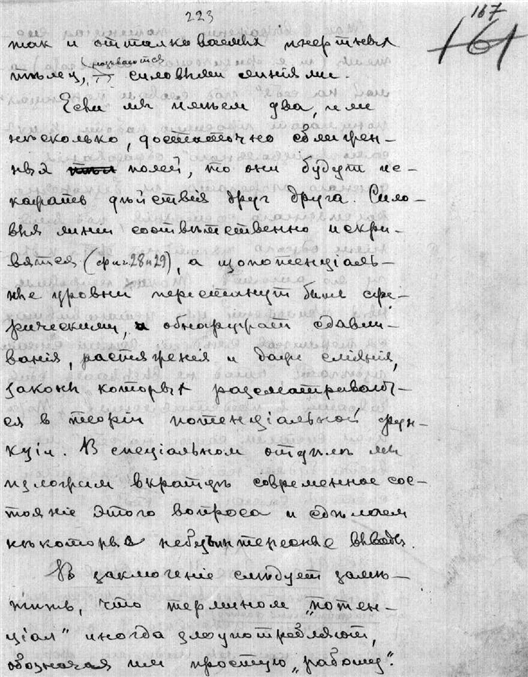 223
167
161
такъ и отталкиванія инертныхъ
называются
тѣлецъ, силовыми линіями.
Если мы имѣемъ два, или
нѣсколько, достаточно сближен-
ныя полей, то они будутъ ис-
кажать дѣйствія другъ друга. Сило-
выя линіи соотвѣтственно искри-
вятся (фиг. 28 и 29), а изопотенціаль-
ные уровни перестанутъ быть сфе-
рическими, и обнаружатъ сдавли-
ванія, растяженія и даже сліянія,
законы которыхъ разсматривают-
ся в теоріи потенціальной фун-
кціи. В спеціальномъ отдѣлѣ мы
изложимъ вкратцѣ современное сос-
тояніе этого вопроса и сдѣлаемъ
нѣкоторые небезъинтересные выводы.
В заключеніе слѣдуетъ замѣ-
тить, что терминомъ „потен-
ціал" иногда злоупотребляютъ,
обозначая имъ простую „работу".